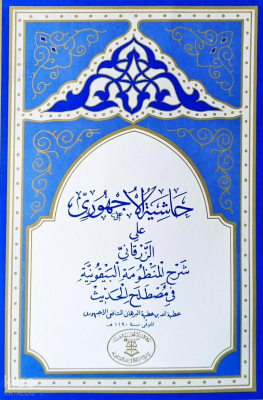 حاشية الأجهوري
على
الزرقاني
شرح المنظومة البيقونية
في مصطلح الحديث
عطية الله بن عطية البرهان الشافعي الأجهوري
المتوفى سنة ١١٩٠ هـ